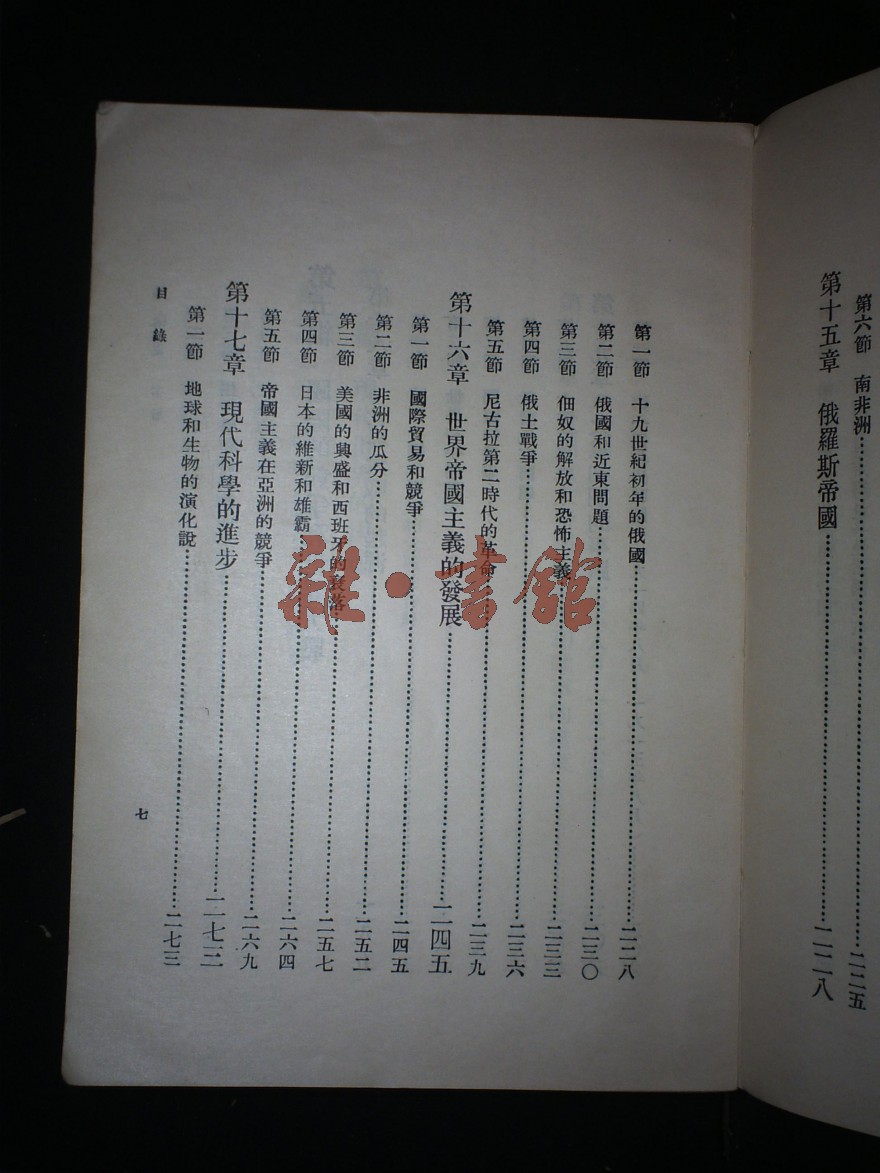 第六節 南非洲…………二二五
第十五章 俄羅斯帝國…………二二八
第一節 十九世紀初年的俄國…………二二八
第二節 俄國和近東問題…………二三〇
第三節 佃奴的解放和恐怖主義…………二三三
第四節 俄土戰爭…………二三六
第五節 尼古拉第二時代的革命…………二三九
第十六章 世界帝國主義的發展…………二四五
第一節 國際貿易和競爭…………二四五
第二節 非洲的瓜分…………二五二
第三節 美國的興盛和西班牙的衰落…………二五七
第四節 日本的維新和雄霸…………二六四
第五節 帝國主義在亞洲的競爭…………二六九
第十七章 現代科學的進步…………二七三
第一節 地球和生物的演化說…………二七三
目錄
七
雜·書館